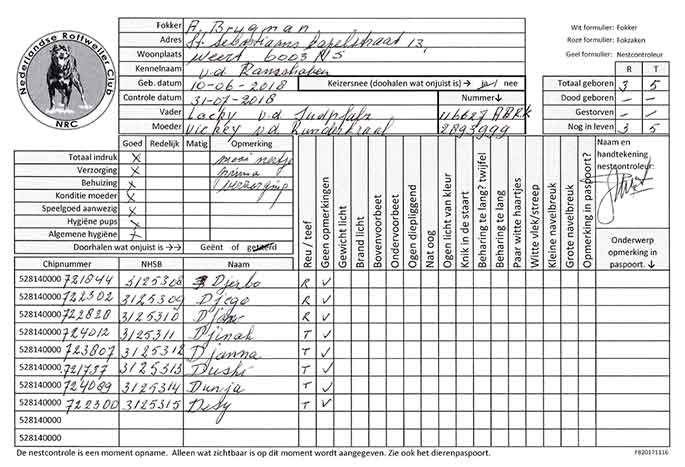 Nederlandse Rottweiler Club
NRC
Fokker A. Brugman
Adres St. Sebastiaans kapelstraat 13,
Woonplaats Weert 6003 NS
Kennelnaam v.d.
Geb. datum 10-06-2018 Keizersnee (doorhalen wat onjuist is) → ja / nee
Controle datum 31-07-2018 Nummer↓
Vader Lacky v.d. Südpfalz 116627 ADRK
Moeder Vickey v.d. Runderkraal 2893999
Wit formulier: Fokker
Roze formulier: Fokzaken
Geel formulier: Nestcontroleur
R T
Totaal geboren 3 5
Dood geboren – –
Gestorven – –
Nog in leven 3 5
Goed Redelijk Matig Opmerking
Totaal indruk X mooi nestje
Verzorging X prima
Behuizing X verzorging
Konditie moeder X
Speelgoed aanwezig X
Hygiëne pups X
Algemene hygiëne X
Doorhalen wat onjuist is →→ Geënt of geënterd
Reu / teef
Geen opmerkingen
Gewicht licht
Brand licht
Bovenvoorbeet
Ondervoorbeet
Ogen diepliggend
Nat oog
Ogen licht van kleur
Knik in de staart
Beharing te lang? twijfel
Beharing te lang
Paar witte haartjes
Witte vlek/streep
Kleine navelbreuk
Grote navelbreuk
Opmerking in paspoort?
Naam en
handtekening
nestcontroleur:
Onderwerp
opmerking in
paspoort. ↓
Chipnummer NHSB Naam
528140000 721844 3125308 Djerbo R ✓
528140000 722302 3125309 Djego R ✓
528140000 722828 3125310 R ✓
528140000 724012 3125311 Djinah T ✓
528140000 723807 3125312 Djanna T ✓
528140000 721737 3125313 Dushi T ✓
528140000 724089 3125314 Dunja T ✓
528140000 722300 3125315 Desy T ✓
528140000
528140000
De nestcontrole is een moment opname. Alleen wat zichtbaar is op dit moment wordt aangegeven. Zie ook het dierenpaspoort. FB20171116